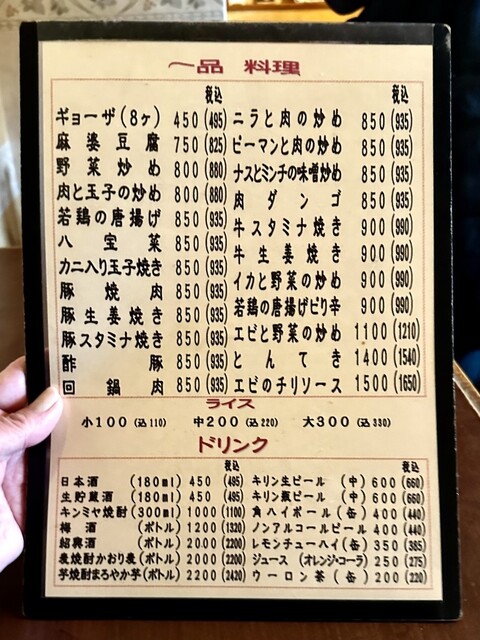 一品 料理
税込
ギョーザ(8ヶ) 450(495)
麻婆豆腐 750(825)
野菜炒め 800(880)
肉と玉子の炒め 800(880)
若鶏の唐揚げ 850(935)
八宝菜 850(935)
カニ入り玉子焼き 850(935)
豚焼肉 850(935)
豚生姜焼き 850(935)
豚スタミナ焼き 850(935)
酢豚 850(935)
回鍋肉 850(935)
税込
ニラと肉の炒め 850(935)
ピーマンと肉の炒め 850(935)
ナスとミンチの味噌炒め 850(935)
肉ダンゴ 850(935)
牛スタミナ焼き 900(990)
牛生姜焼き 900(990)
イカと野菜の炒め 900(990)
若鶏の唐揚げピリ辛 900(990)
エビと野菜の炒め 1100(1210)
とんてき 1400(1540)
エビのチリソース 1500(1650)
ライス
小100(込110) 中200(込220) 大300(込330)
ドリンク
税込
日本酒 (180ml) 450 (495)
生貯蔵酒 (180ml) 450 (495)
キンミヤ焼酎(300ml) 1000(1100)
梅酒 (ボトル) 1200(1320)
紹興酒 (ボトル) 2000(2200)
麦焼酎かおり麦(ボトル) 2000(2200)
芋焼酎まろやか芋(ボトル) 2200(2420)
税込
キリン生ビール (中) 600(660)
キリン瓶ビール (中) 600(660)
角ハイボール(缶) 400(440)
ノンアルコールビール 400(440)
レモンチューハイ(缶) 350(385)
ジュース (オレンジ・コーラ) 250(275)
ウーロン茶(缶) 200(220)